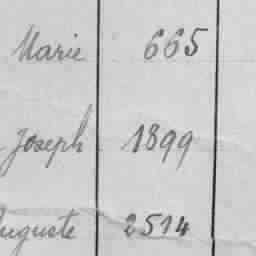 Marie 665
Joseph 1899
Auguste 2514